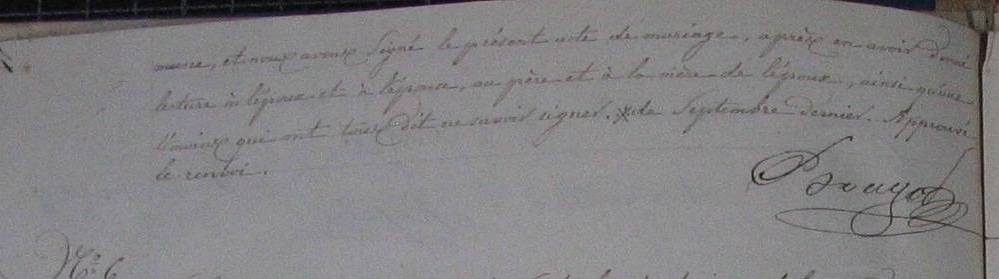 et nous avons signé le présent acte de mariage, après en avoir donné
lecture à l'époux et à l'épouse, au père et à la mère de l'époux, ainsi qu'aux
témoins qui ont tous dit ne savoir signer. x de Septembre dernier. Approuvé
le renvoi.
N.° 6